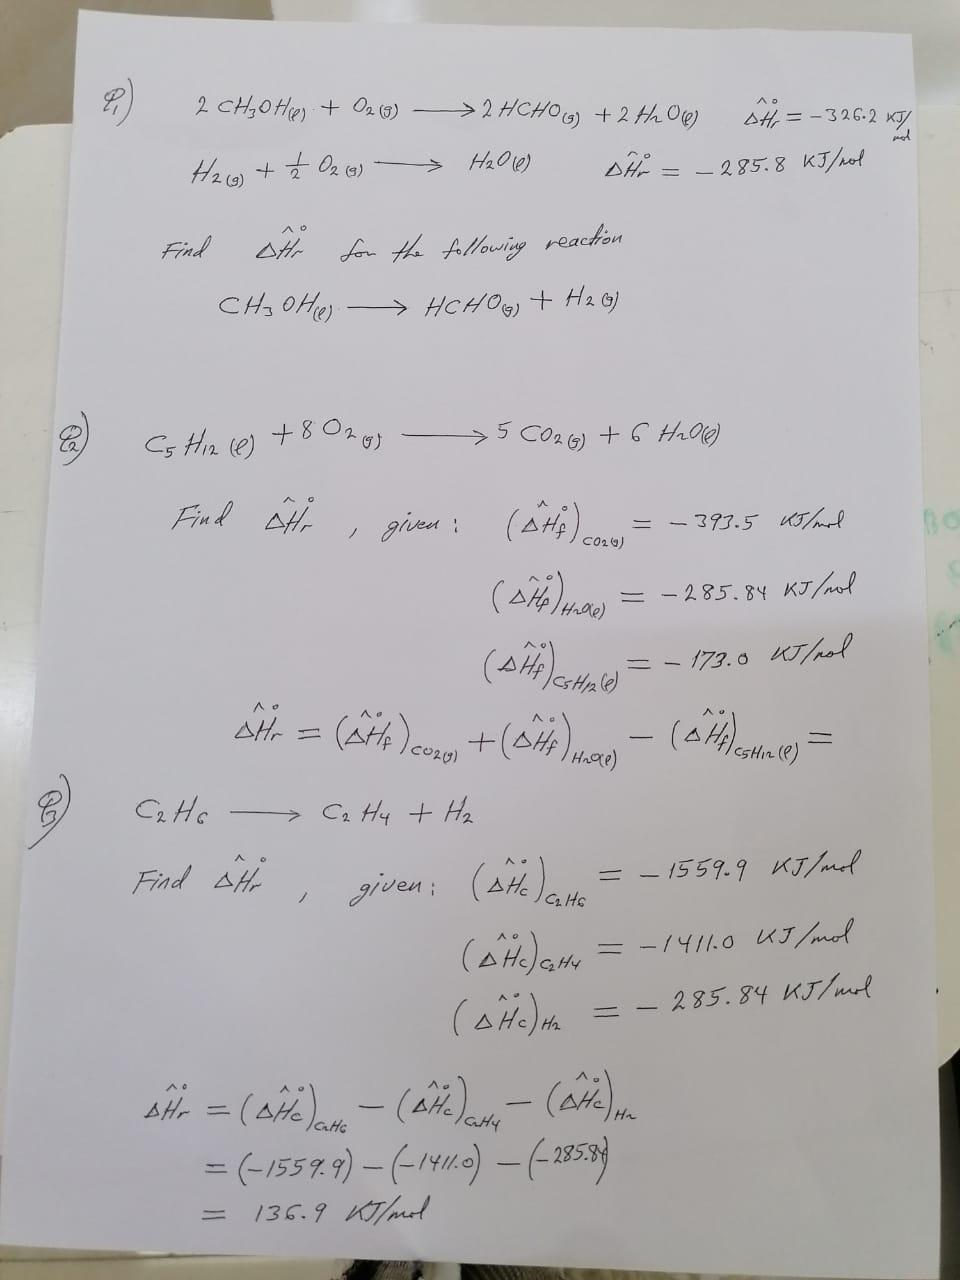 Q1) 2 CH3OH(l) + O2(g) → 2 HCHO(g) + 2 H2O(l) ΔĤ°r = -326.2 KJ/mol
H2(g) + 1/2 O2(g) → H2O(l) ΔĤ°r = -285.8 KJ/mol
Find ΔĤ°r for the following reaction
CH3OH(l) → HCHO(g) + H2(g)
Q2) C5H12(l) + 8 O2(g) → 5 CO2(g) + 6 H2O(l)
Find ΔĤ°r, given: (ΔĤ°f)CO2(g) = -393.5 KJ/mol
(ΔĤ°f)H2O(l) = -285.84 KJ/mol
(ΔĤ°f)C5H12(l) = -173.0 KJ/mol
ΔĤ°r = (ΔĤ°f)CO2(g) + (ΔĤ°f)H2O(l) - (ΔĤ°f)C5H12(l) =
Q3) C2H6 → C2H4 + H2
Find ΔĤ°r, given: (ΔĤ°c)C2H6 = -1559.9 KJ/mol
(ΔĤ°c)C2H4 = -1411.0 KJ/mol
(ΔĤ°c)H2 = -285.84 KJ/mol
ΔĤ°r = (ΔĤ°c)C2H6 - (ΔĤ°c)C2H4 - (ΔĤ°c)H2
= (-1559.9) - (-1411.0) - (-285.84)
= 136.9 KJ/mol